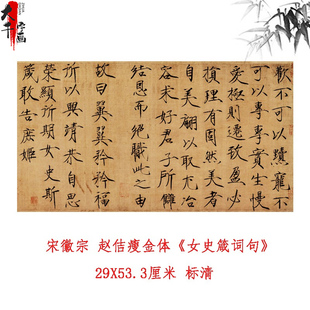 大千字画
歡不可以黷寵不
可以專專實生慢
愛極則遷致盈必
損理有固然美者
自美翩以取尤冶
容求好君子所讎
結恩而絕職此之由
故曰翼翼矜矜福
所以興靖恭自思
榮顯所期女史斯
箴敢告庶姬
宋徽宗 赵佶瘦金体《女史箴词句》
29X53.3厘米 标清